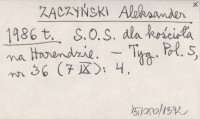 ZĄCZYŃSKI Aleksander
1986 t. S.O.S. dla kościoła
na Harendzie. — Tyg. Pol. 5,
nr 36 (7 IX): 4.